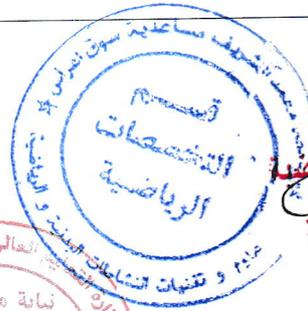 محمد الشريف مساعدية سوق أهراس
قسم
التخصصات
الرياضية
علوم و تقنيات النشاطات البدنية و الرياضية
نيابة